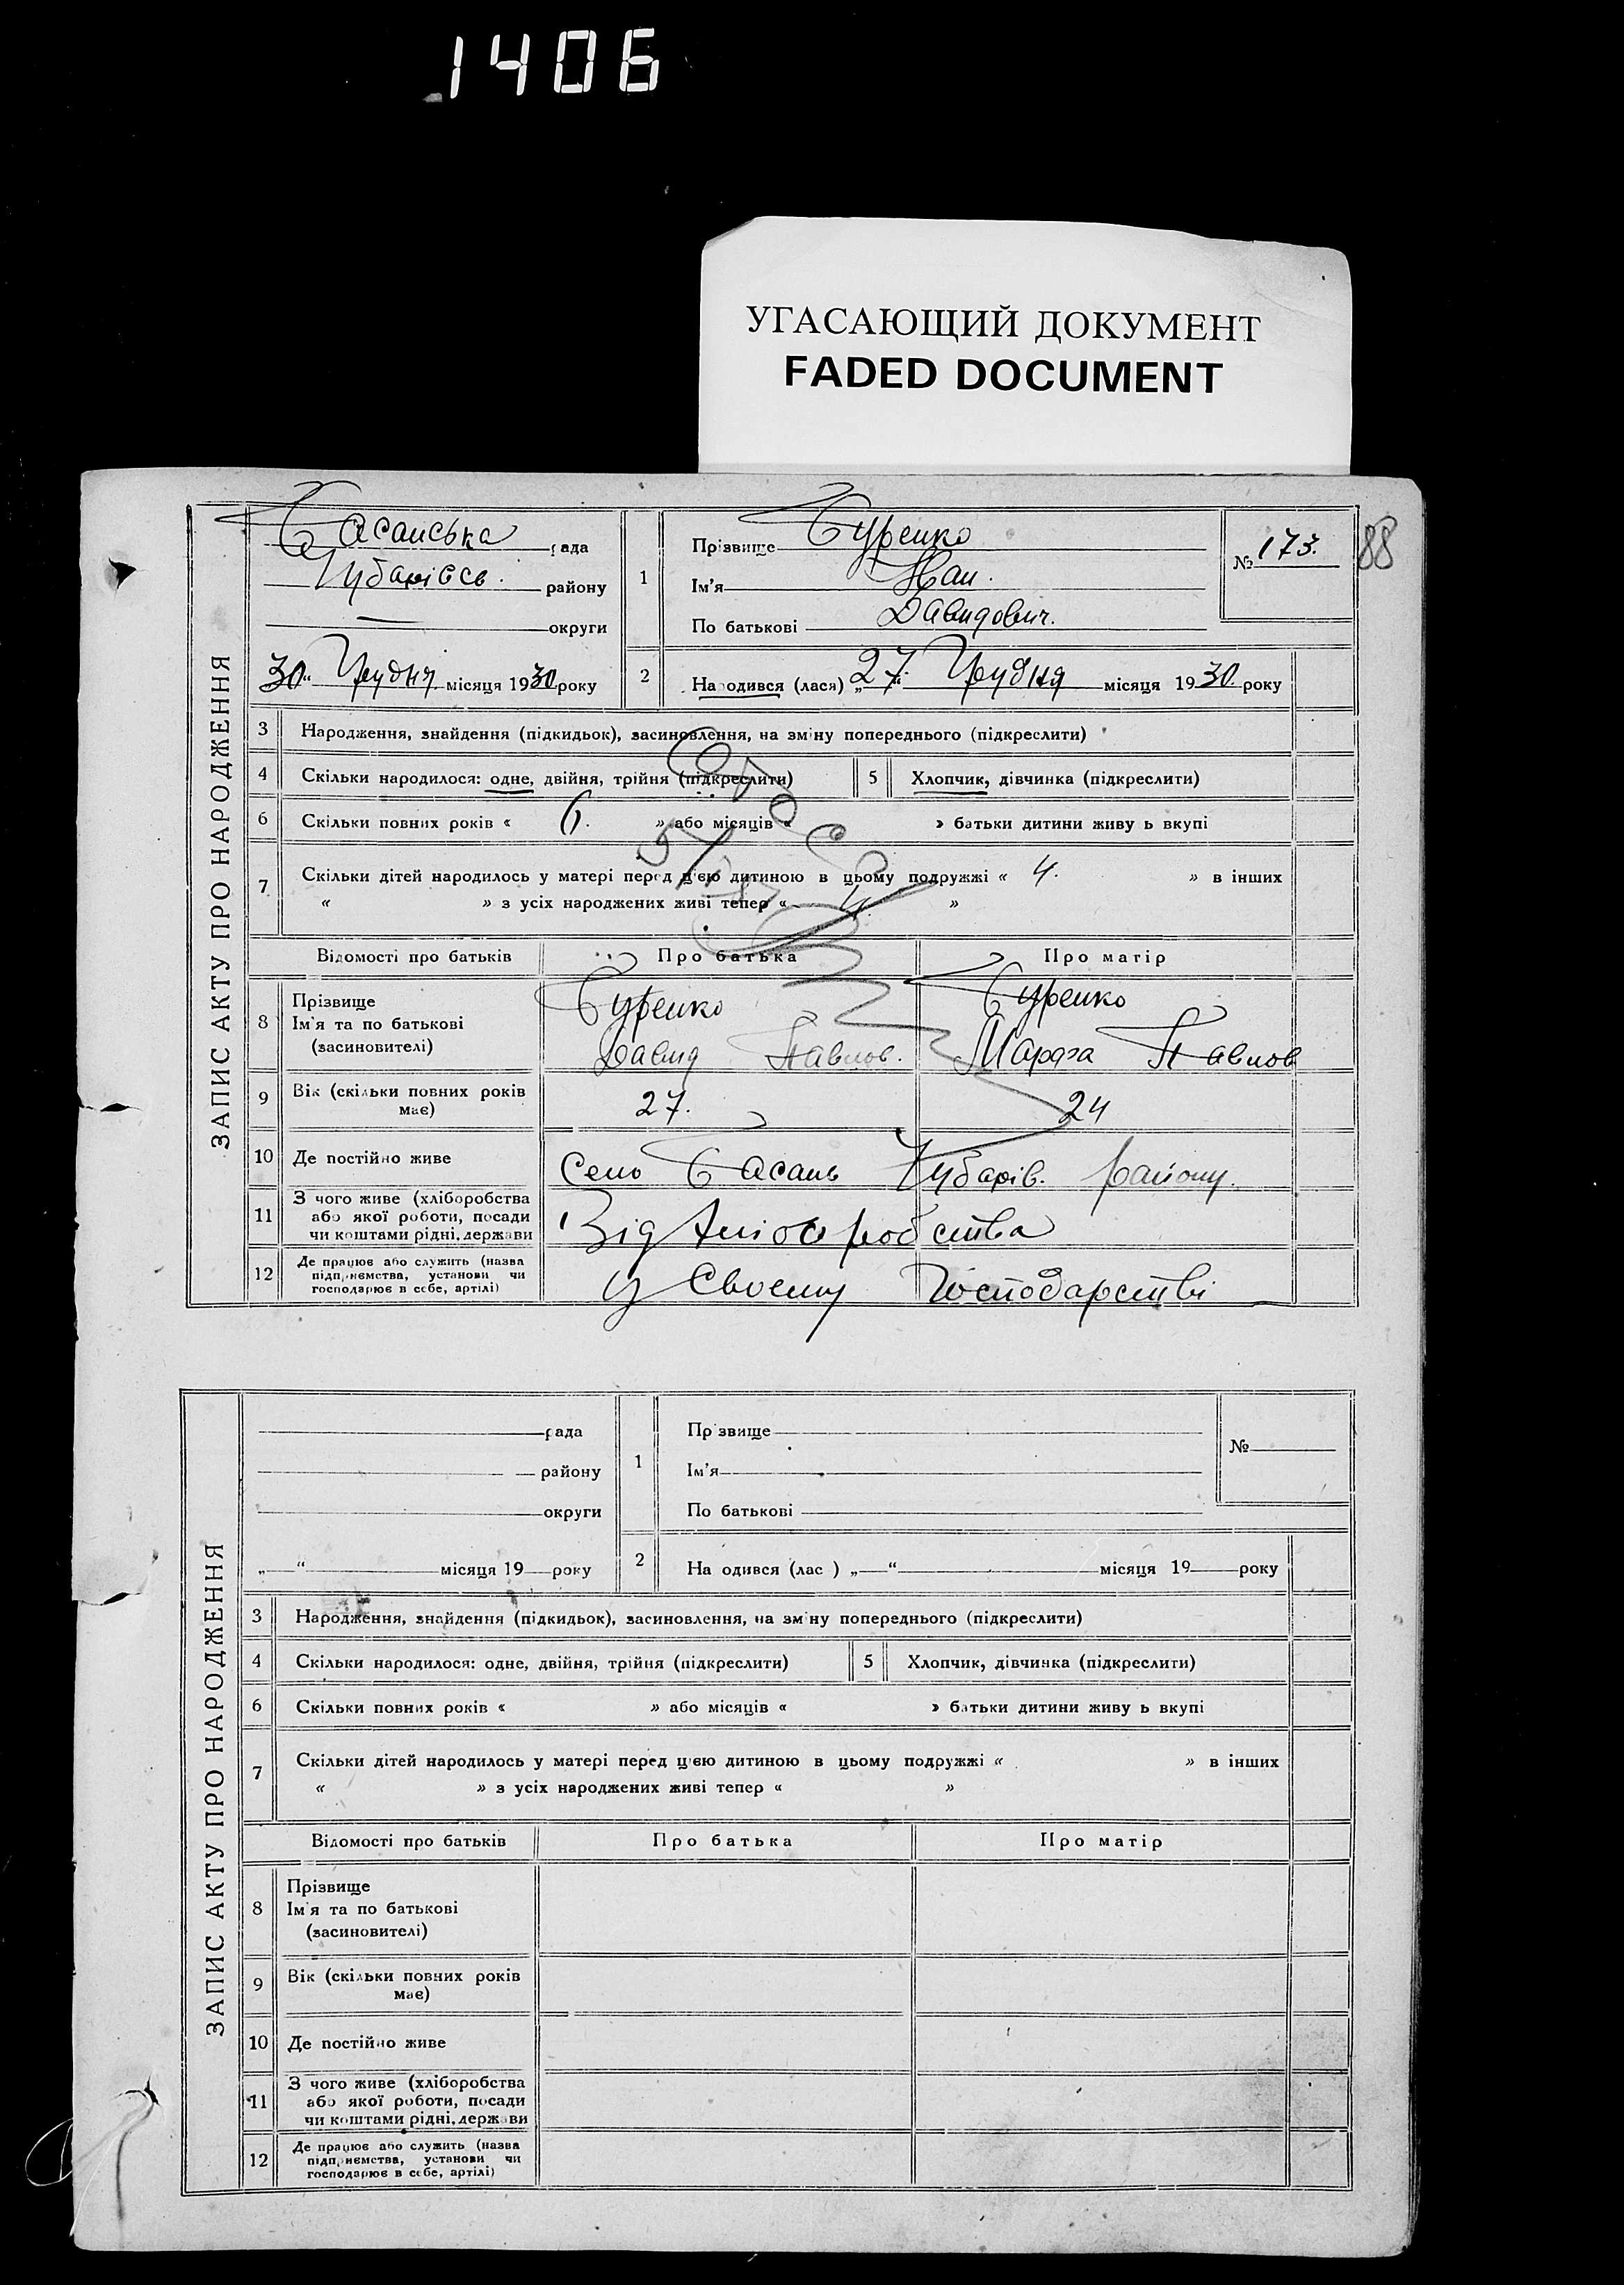 1406
УГАСАЮЩИЙ ДОКУМЕНТ
FADED DOCUMENT
88
ЗАПИС АКТУ ПРО НАРОДЖЕННЯ
Басанська рада
Чубарівсь. району
— округи
30 Грудня місяця 1930 року
1
Прізвище Буренко
Ім'я Іван.
По батькові Давидович.
№ 173.
2
Народився (лася) „27“ Грудня місяця 1930 року
3 Народження, знайдення (підкидьок), засиновлення, на зміну попереднього (підкреслити)
4 Скільки народилося: одне, двійня, трійня (підкреслити) 5 Хлопчик, дівчинка (підкреслити)
6 Скільки повних років « 6. » або місяців « » батьки дитини живу ь вкупі
7 Скільки дітей народилось у матері перед цією дитиною в цьому подружжі « 4. » в інших
« » з усіх народжених живі тепер « 4. »
Відомості про батьків Про батька Про матір
8 Прізвище
Ім'я та по батькові
(засиновителі)
Буренко
Давид Павлов.
Буренко
Марфа Павлов
9 Вік (скільки повних років
має)
27. 24
10 Де постійно живе Село Басань Чубарів. району.
11 З чого живе (хліборобства
або якої роботи, посади
чи коштами рідні, держави
Від хліборобства
12 Де працює або служить (назва
підприємства, установи чи
господарює в себе, артілі)
у Своєму Господарстві
ЗАПИС АКТУ ПРО НАРОДЖЕННЯ
рада
району
округи
„ “ місяця 19 року
1
Пр звище
Ім'я
По батькові
№
2
На одився (лас ) „ “ місяця 19 року
3 Народження, знайдення (підкидьок), засиновлення, на зм ну попереднього (підкреслити)
4 Скільки народилося: одне, двійня, трійня (підкреслити) 5 Хлопчик, дівчинка (підкреслити)
6 Скільки повних років « » або місяців « » батьки дитини живу ь вкупі
7 Скільки дітей народилось у матері перед цією дитиною в цьому подружжі « » в інших
« » з усіх народжених живі тепер « »
Відомості про батьків Про батька Про матір
8 Прізвище
Ім'я та по батькові
(засиновителі)
9 Вік (скільки повних років
має)
10 Де постійно живе
11 З чого живе (хліборобства
або якої роботи, посади
чи коштами рідні, держави
12 Де працює або служить (назва
підприємства, установи чи
господарює в себе, артілі)